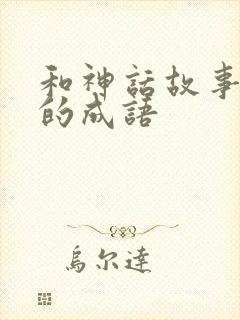 和神話故事
的成語
烏尔達